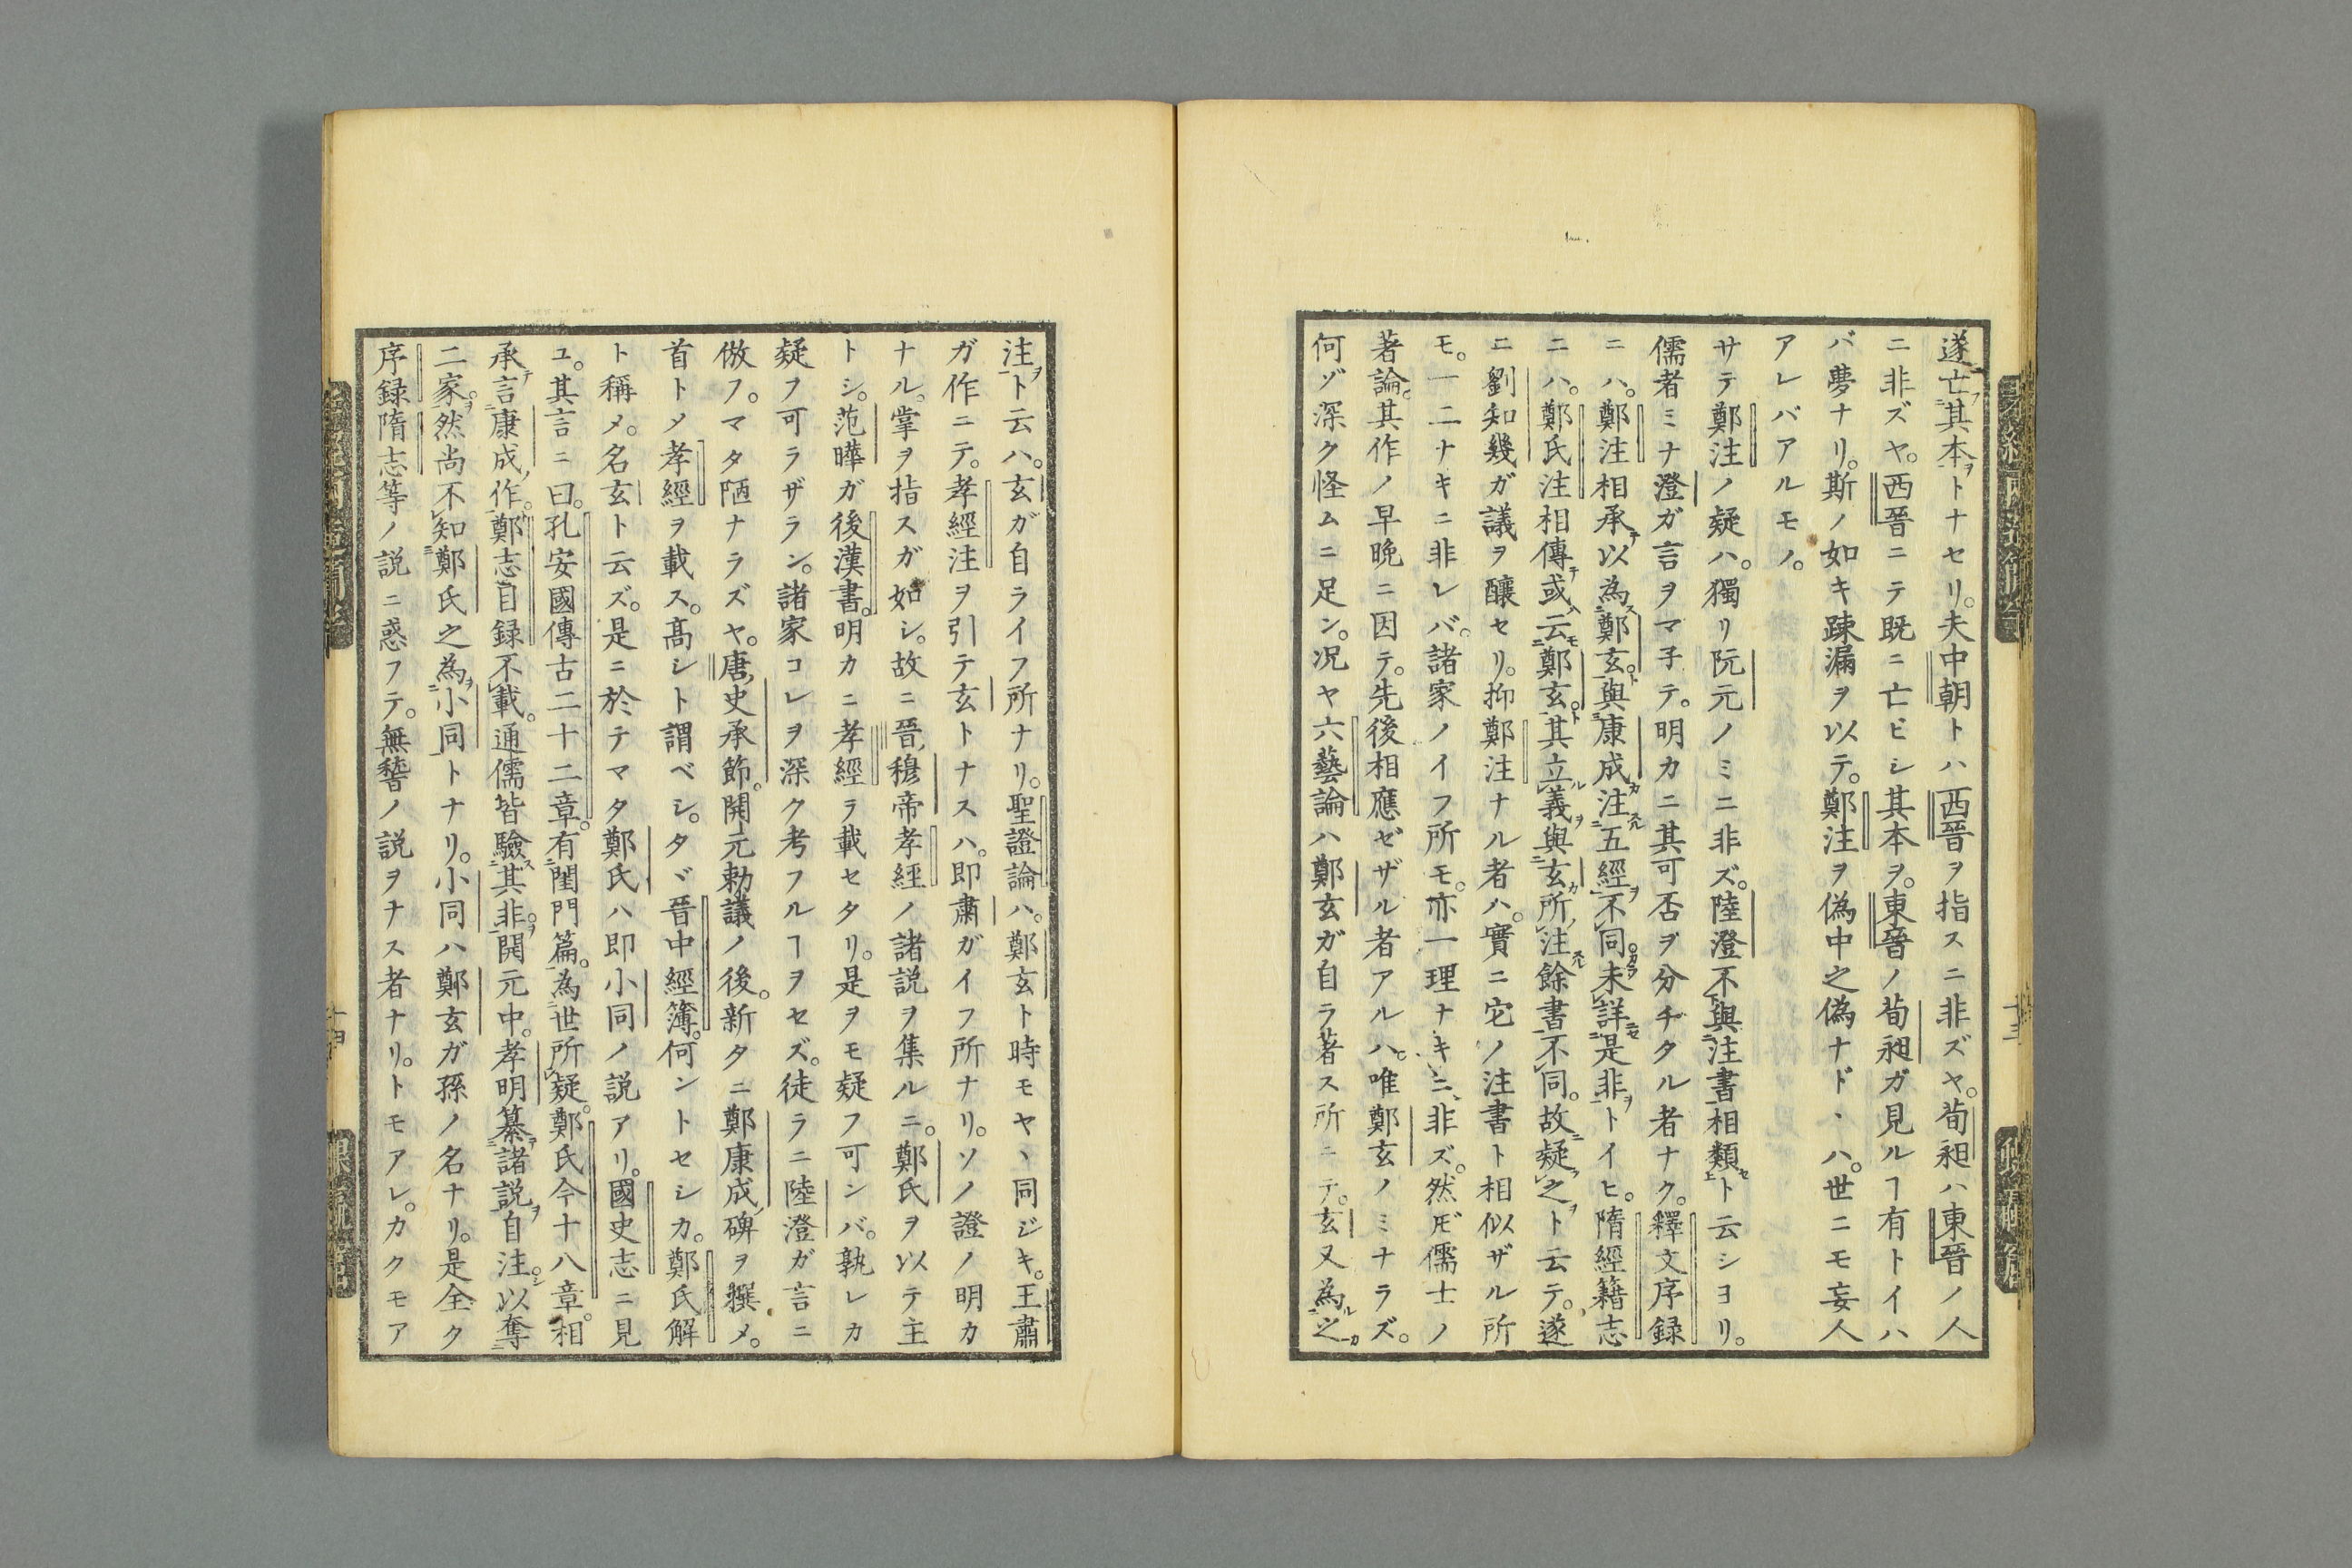 遂亡其本トナセリ。夫中朝トハ西晉ヲ指スニ非ズヤ。荀昶ハ東晉ノ人
ニ非ズヤ。西晉ニテ既ニ亡ビシ其本ヲ。東晉ノ荀昶ガ見ルヿ有トイハ
バ夢ナリ。斯ノ如キ疎漏ヲ以テ。鄭注ヲ偽中之偽ナド、ハ。世ニモ妄人
アレバアルモノ。
サテ鄭注ノ疑ハ。獨リ阮元ノミニ非ズ。陸澄不與注書相類ト云シヨリ。
儒者ミナ澄ガ言ヲマ子テ。明カニ其可否ヲ分チタル者ナク。釋文序録
ニハ。鄭注相承以為鄭玄。與康成注五經不同。未詳是非トイヒ。隋經籍志
ニハ。鄭氏注相傳或云鄭玄。其立義與玄所注餘書不同。故疑之ト云テ。遂
ニ劉知幾ガ議ヲ釀セリ。抑鄭注ナル者ハ。實ニ它ノ注書ト相似ザル所
モ。一二ナキニ非レバ。諸家ノイフ所モ。亦一理ナキニ非ズ。然𪜈儒士ノ
著論。其作ノ早晩ニ因テ。先後相應ゼザル者アルハ。唯鄭玄ノミナラズ。
何ゾ深ク怪ムニ足ン。况ヤ六藝論ハ鄭玄ガ自ラ著ス所ニテ。玄又為之
注ト云ハ。玄ガ自ライフ所ナリ。聖證論ハ。鄭玄ト時モヤヽ同ジキ。王肅
ガ作ニテ。孝經注ヲ引テ玄トナスハ。即肅ガイフ所ナリ。ソノ證ノ明カ
ナル。掌ヲ指スガ如シ。故ニ晉穆帝孝經ノ諸説ヲ集ルニ。鄭氏ヲ以テ主
トシ。范曄ガ後漢書。明カニ孝經ヲ載セタリ。是ヲモ疑フ可ンバ。孰レカ
疑フ可ラザラン。諸家コレヲ深ク考フルヿヲセズ。徒ラニ陸澄ガ言ニ
倣フ。マタ陋ナラズヤ。唐史承節。開元勅議ノ後。新タニ鄭康成碑ヲ撰メ。
首トメ孝經ヲ載ス。髙シト謂ベシ。タヾ晉中經簿。何ントセシカ。鄭氏解
ト稱メ。名玄ト云ズ。是ニ於テマタ鄭氏ハ即小同ノ説アリ。國史志ニ見
ユ。其言ニ曰。孔安國傳古二十二章。有閨門篇。為世所疑。鄭氏今十八章。相
承言康成作。鄭志自録不載。通儒皆驗其非。開元中。孝明纂諸説自注。以奪
二家。然尚不知鄭氏之為小同トナリ。小同ハ鄭玄ガ孫ノ名ナリ。是全ク
序録隋志等ノ説ニ惑フテ。無稽ノ説ヲナス者ナリ。トモアレ。カクモア